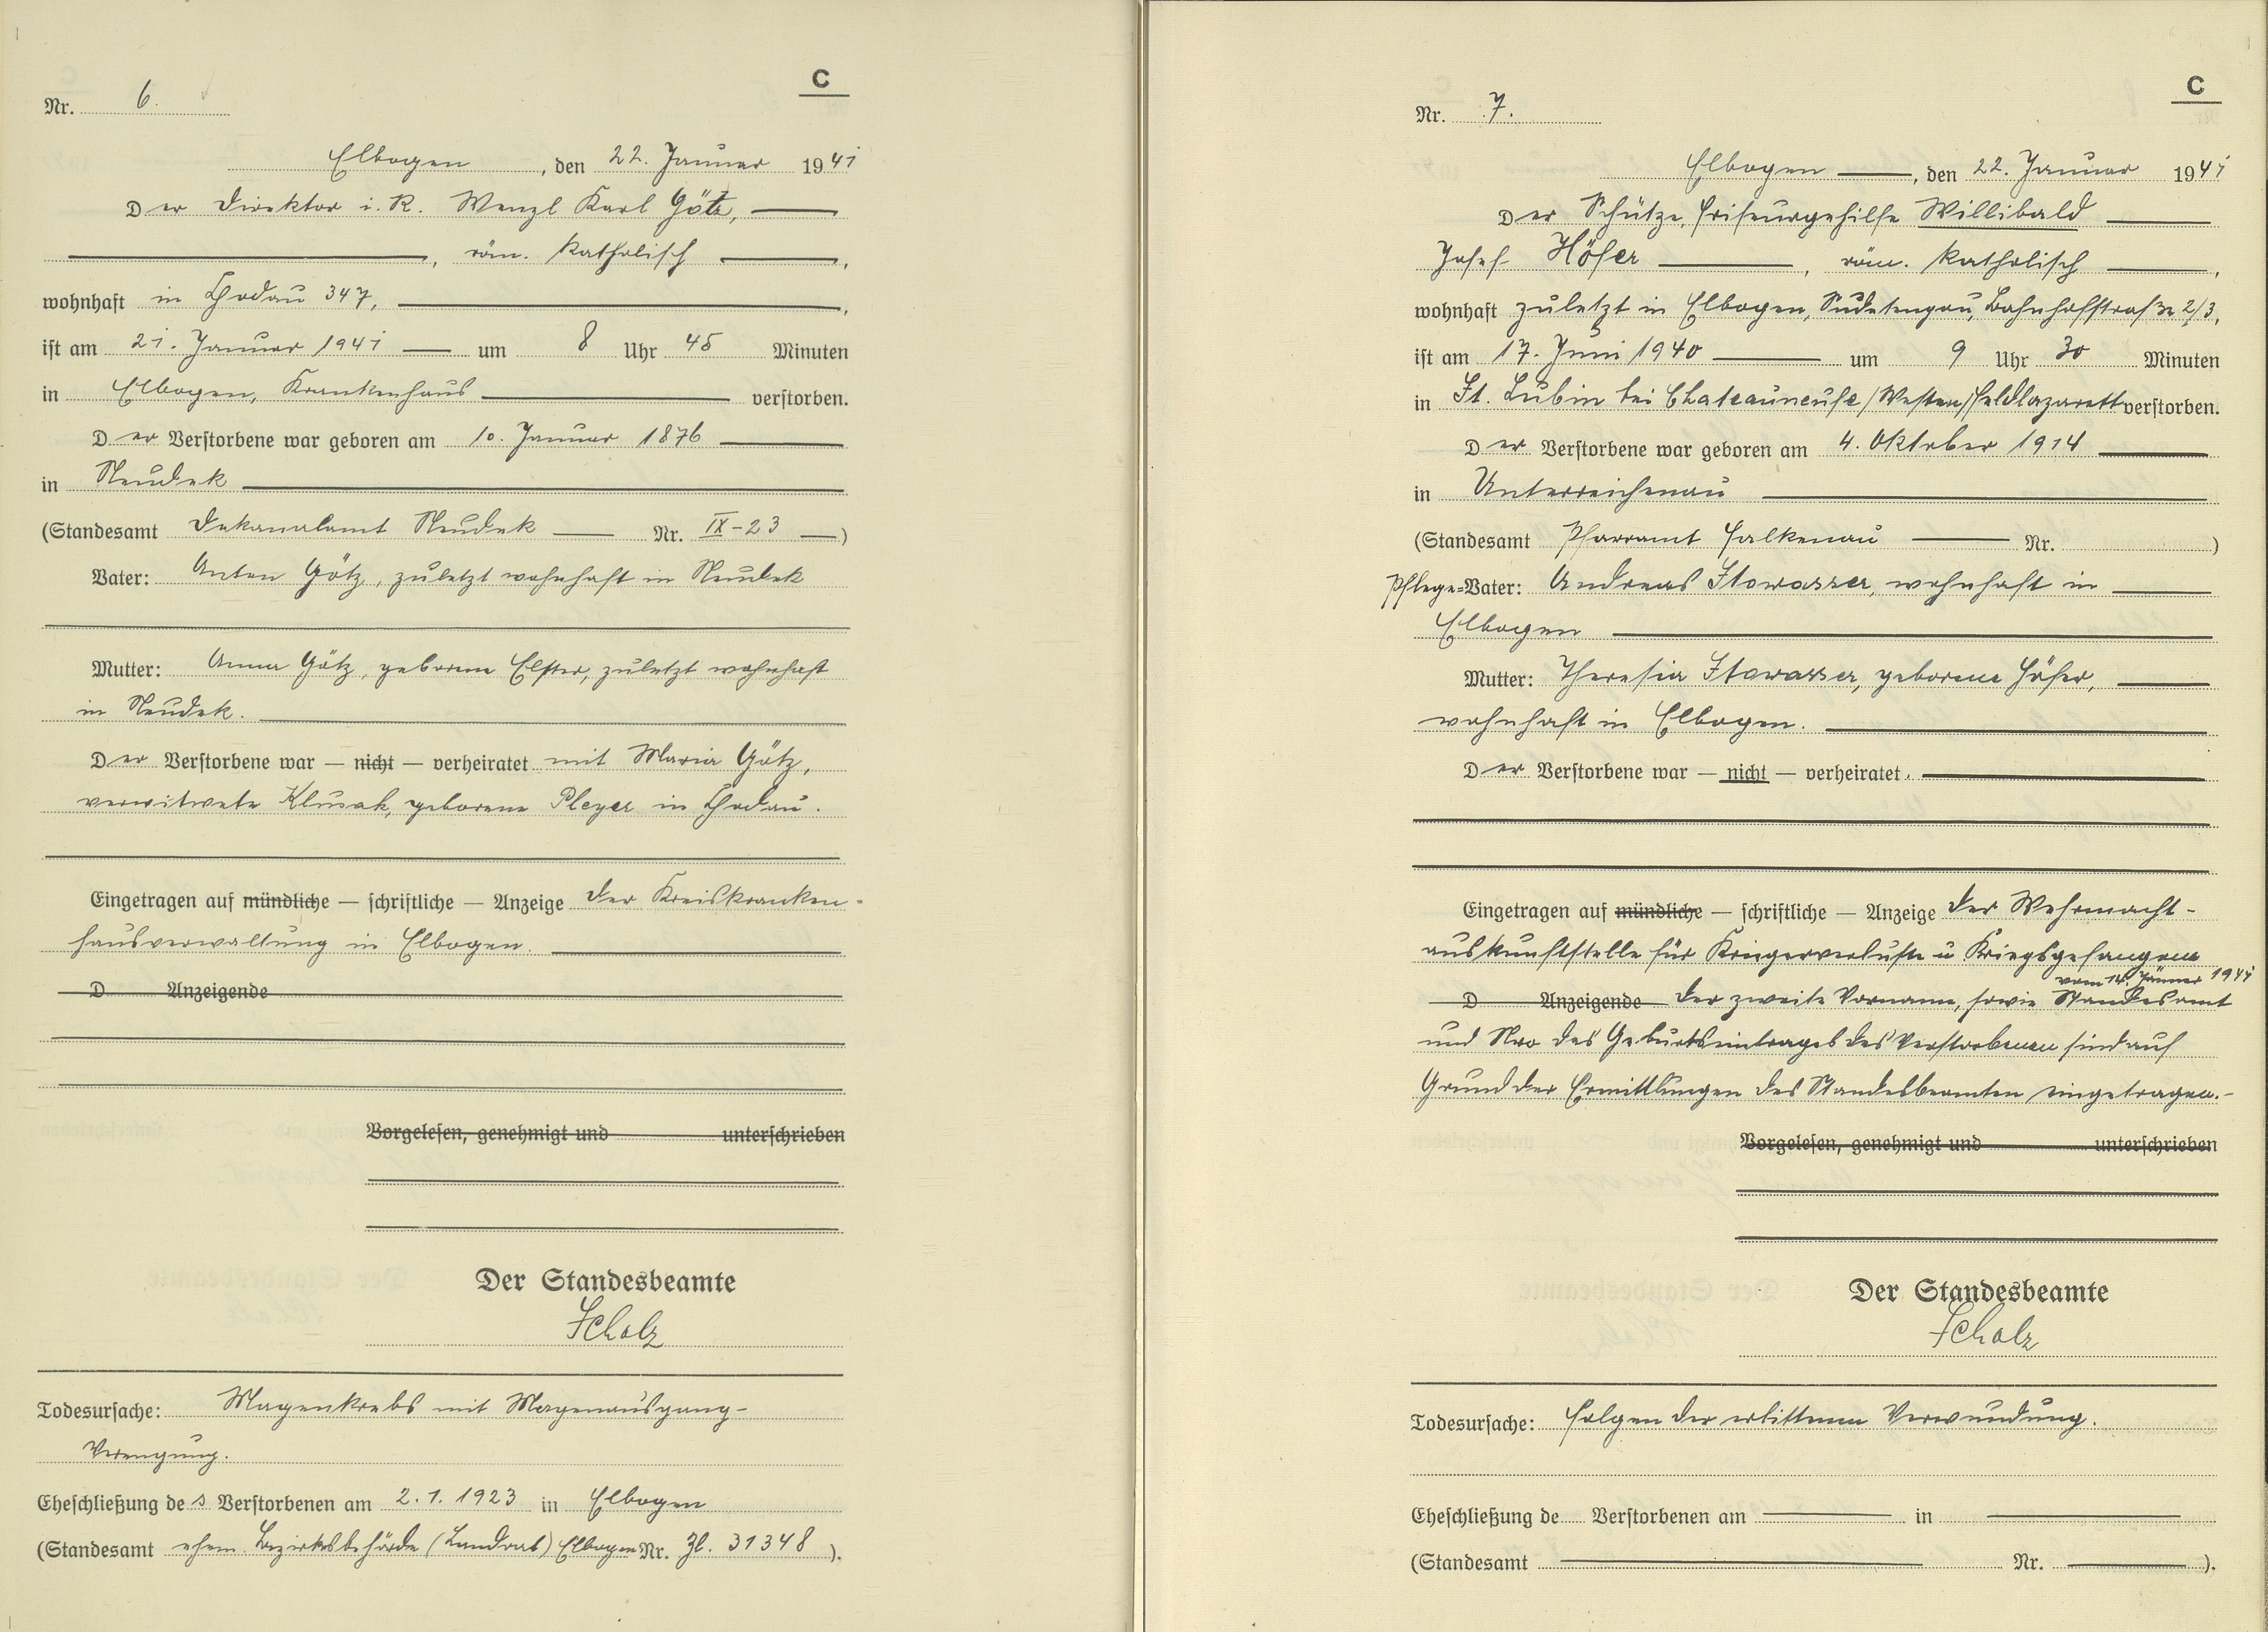 C
Nr. 6.
Elbogen, den 22. Januar 1941
Der Direktor i. R. Wenzl Karl Götz,
, röm. katholisch,
wohnhaft in Chodau 347,
ist am 21. Januar 1941 um 8 Uhr 45 Minuten
in Elbogen, Krankenhaus verstorben.
Der Verstorbene war geboren am 10. Januar 1876
in Neudek
(Standesamt Dekanalamt Neudek Nr. IX-23)
Vater: Anton Götz, zuletzt wohnhaft in Neudek
Mutter: Anna Götz, geborene Elster, zuletzt wohnhaft
in Neudek.
Der Verstorbene war — nicht — verheiratet mit Maria Götz,
verwitwete Klusak, geborene Pleyer in Chodau.
Eingetragen auf mündliche — schriftliche — Anzeige der Kreiskranken-
hausverwaltung in Elbogen.
D Anzeigende
Vorgelesen, genehmigt und unterschrieben
Der Standesbeamte
Scholz
Todesursache: Magenkrebs mit Magenausgang-
Verengung.
Eheschließung des Verstorbenen am 2.1.1923 in Elbogen
(Standesamt ehem. Bezirksbehörde (Landrat) Elbogen Nr. Zl. 31348).
C
Nr. 7.
Elbogen, den 22. Januar 1941
Der Schütze, Friseurgehilfe Willibald
Josef Höfer, röm. katholisch,
wohnhaft zuletzt in Elbogen, Sudetengau, Bahnhofstraße 2/3,
ist am 17. Juni 1940 um 9 Uhr 30 Minuten
in St. Lubin bei Chateauneufe/Westen/Feldlazarett verstorben.
Der Verstorbene war geboren am 4. Oktober 1914
in Unterreichenau
(Standesamt Pfarramt Falkenau Nr. )
Pflege=Vater: Andreas Stowasser, wohnhaft in
Elbogen
Mutter: Theresia Stowasser, geborene Höfer,
wohnhaft in Elbogen.
Der Verstorbene war — nicht — verheiratet.
Eingetragen auf mündliche — schriftliche — Anzeige der Wehrmacht-
auskunftstelle für Kriegerverluste u Kriegsgefangene
vom 14. Jänner 1941
D Anzeigende Der zweite Vorname, sowie Standesamt
und Nro des Geburtseintrages des Verstorbenen sind auf
Grund der Ermittlungen des Standesbeamten eingetragen.-
Vorgelesen, genehmigt und unterschrieben
Der Standesbeamte
Scholz
Todesursache: Folgen der erlittenen Verwundung.
Eheschließung de Verstorbenen am in
(Standesamt Nr. ).